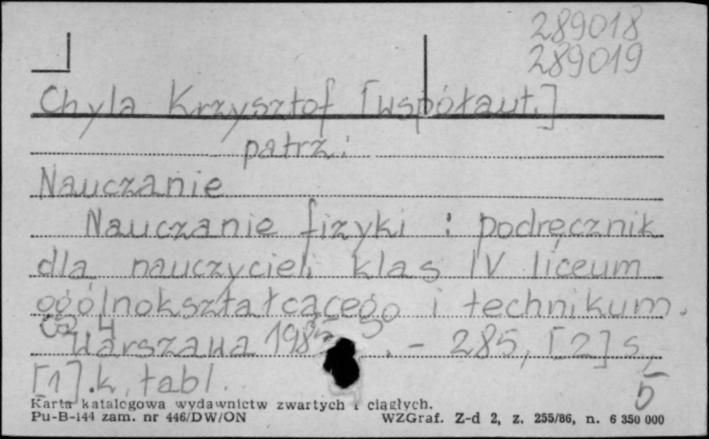 289018
289019
Chyla Krzysztof [współaut.]
patrz:
Nauczanie
Nauczanie fizyki : podręcznik
dla nauczycieli klas IV liceum
ogólnokształcącego i technikum.
Cz. 4
Warszawa 1985. - 285, [2] s,
[1].k, tabl. 5
Karta katalogowa wydawnictw zwartych i ciągłych.
Pu-B-144 zam. nr 446/DW/ON WZGraf. Z-d 2, z. 255/86, n. 6 350 000